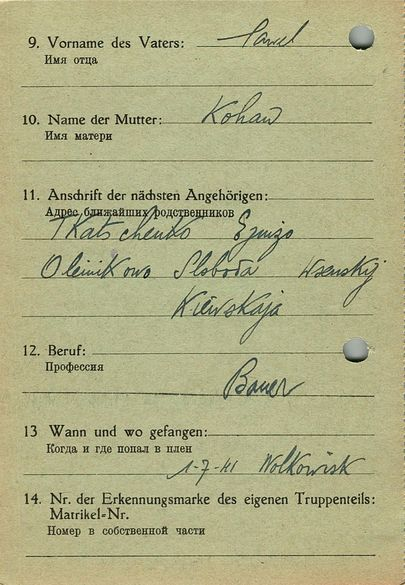 9. Vorname des Vaters: Pawel
Имя отца
10. Name der Mutter: Kohan
Имя матери
11. Anschrift der nächsten Angehörigen:
Адрес ближайших родственников
TKatschenko
Oleinikowo Sloboda
Kiewskaja
12. Beruf:
Профессия
Bauer
13 Wann und wo gefangen:
Когда и где попал в плен
1-7-41 Wolkowisk
14. Nr. der Erkennungsmarke des eigenen Truppenteils:
Matrikel-Nr.
Номер в собственной части